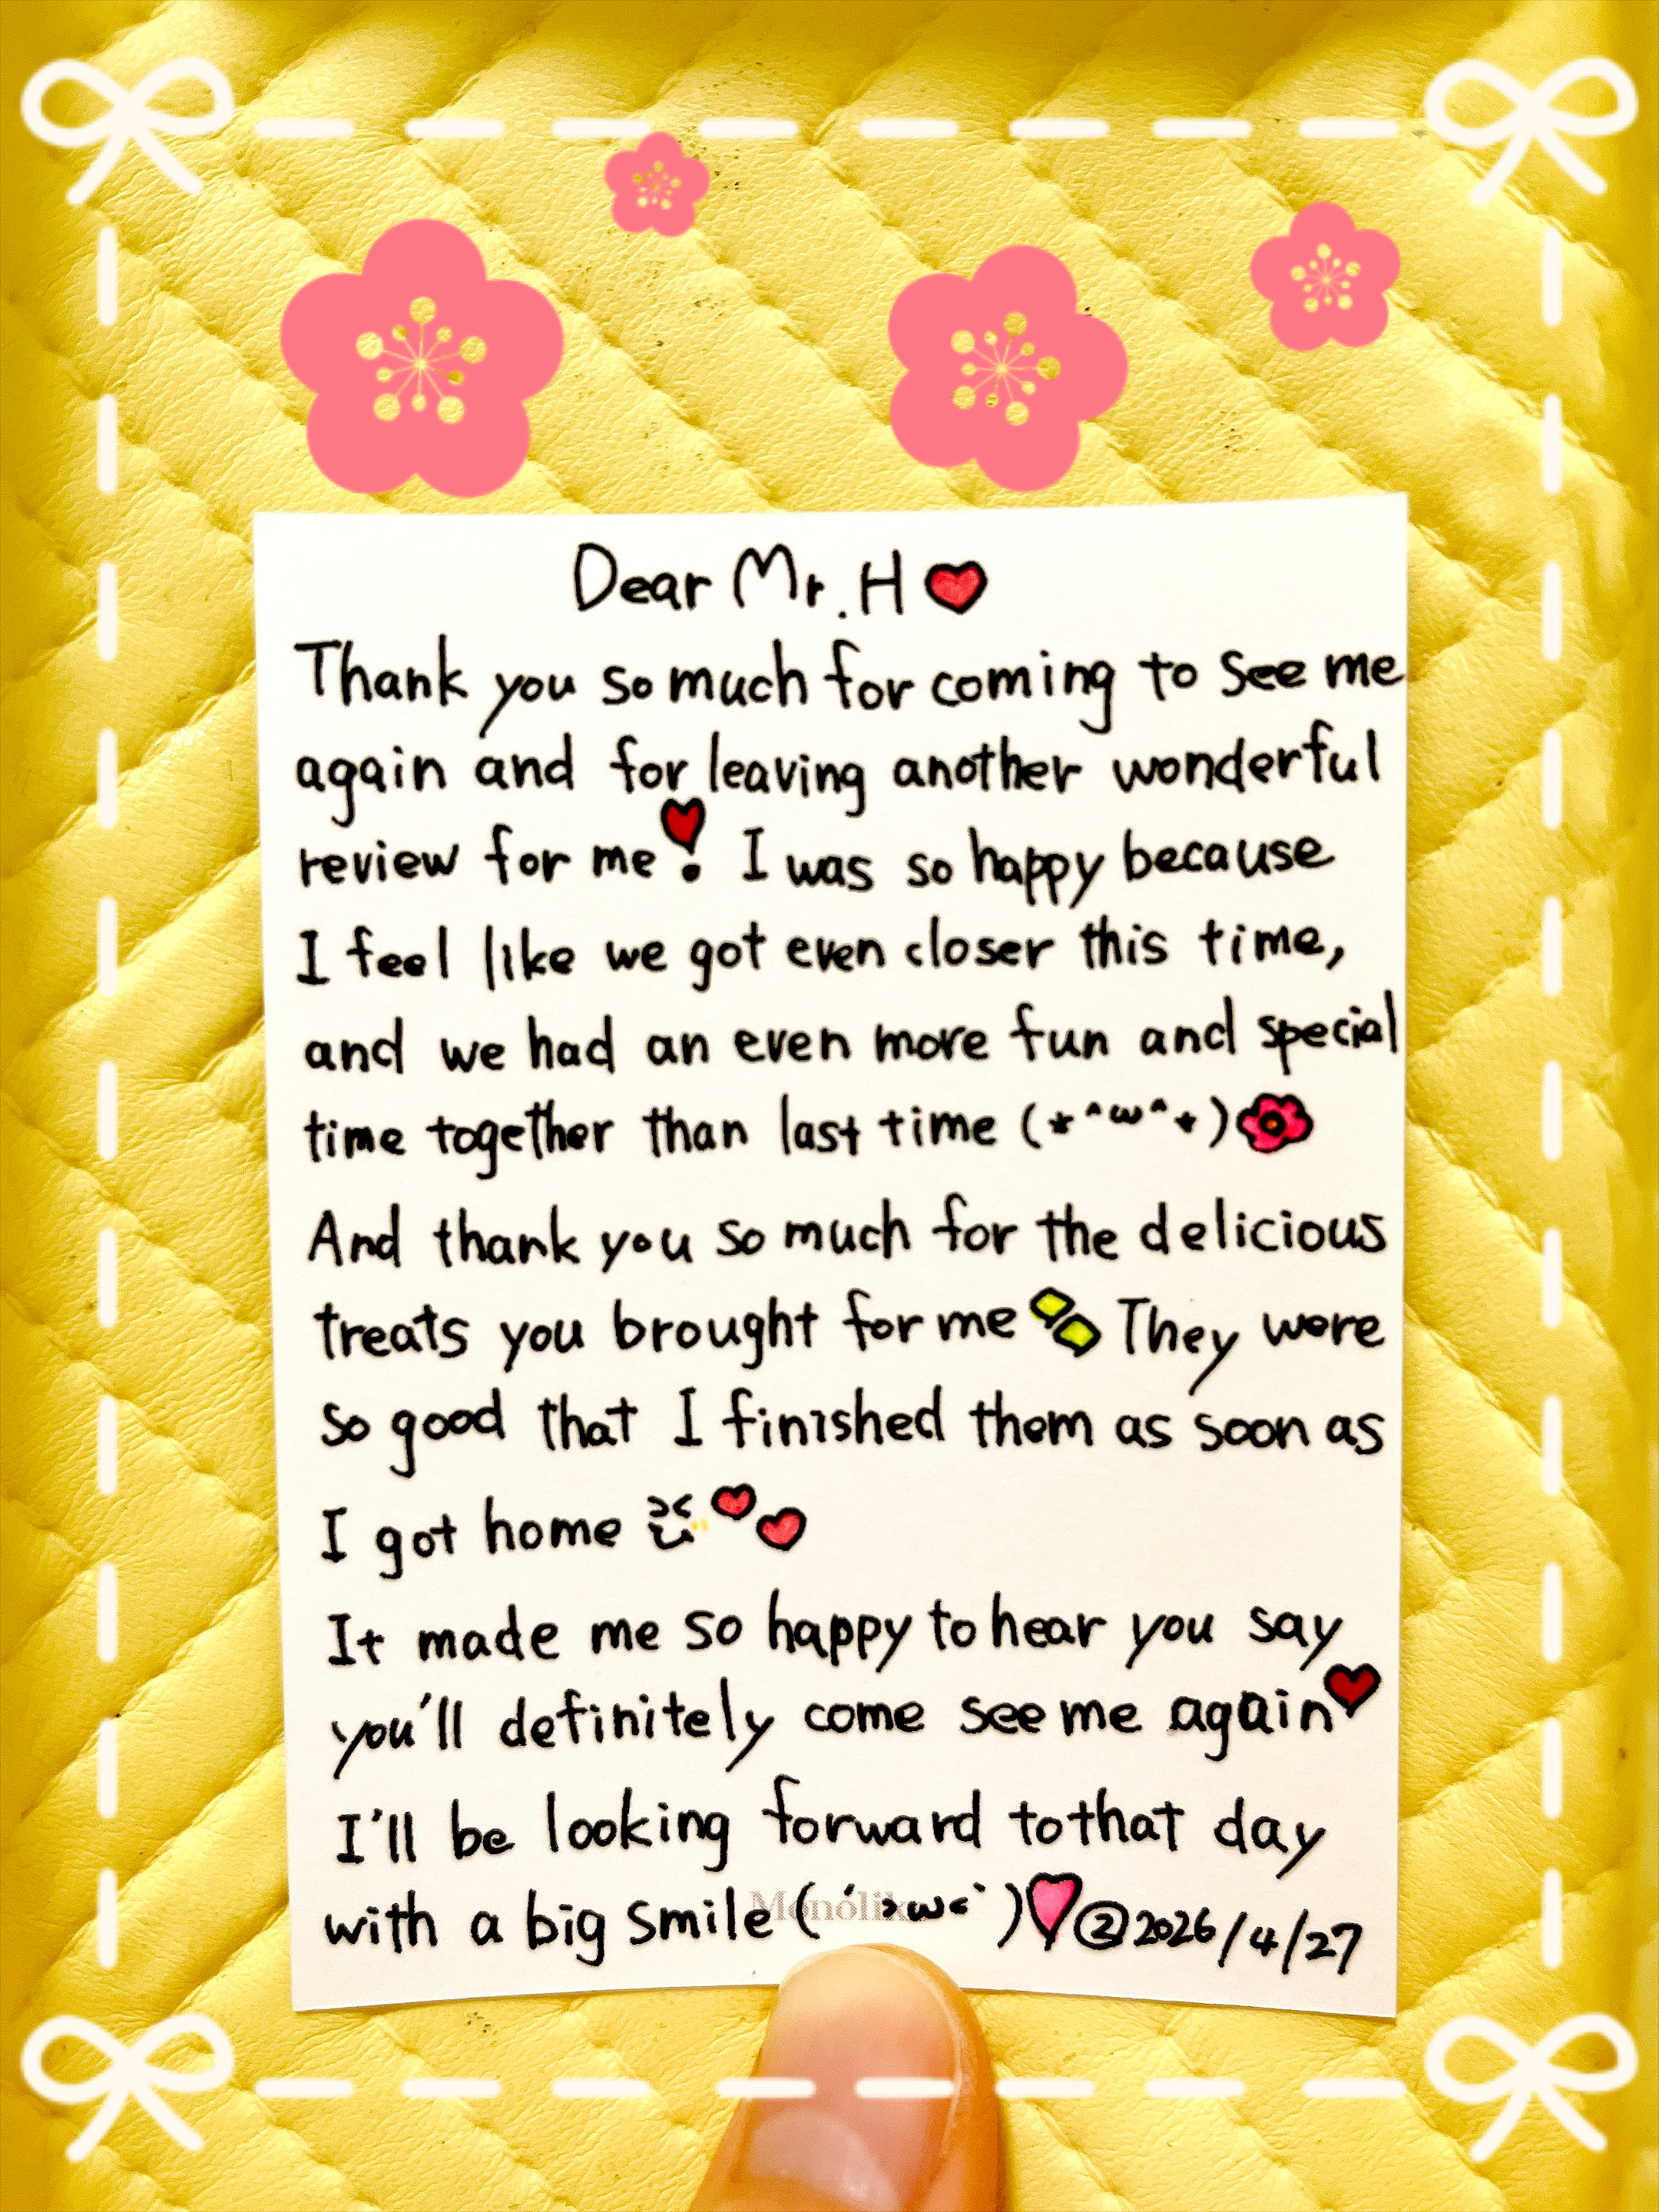 Dear Mr. H ❤
Thank you so much for coming to see me
again and for leaving another wonderful
review for me❣ I was so happy because
I feel like we got even closer this time,
and we had an even more fun and special
time together than last time (*^ω^*)🌺
And thank you so much for the delicious
treats you brought for me They were
so good that I finished them as soon as
I got home
It made me so happy to hear you say
you'll definitely come see me again❤
I'll be looking forward to that day
with a big smile (´>ω<`)♥②2026/4/27